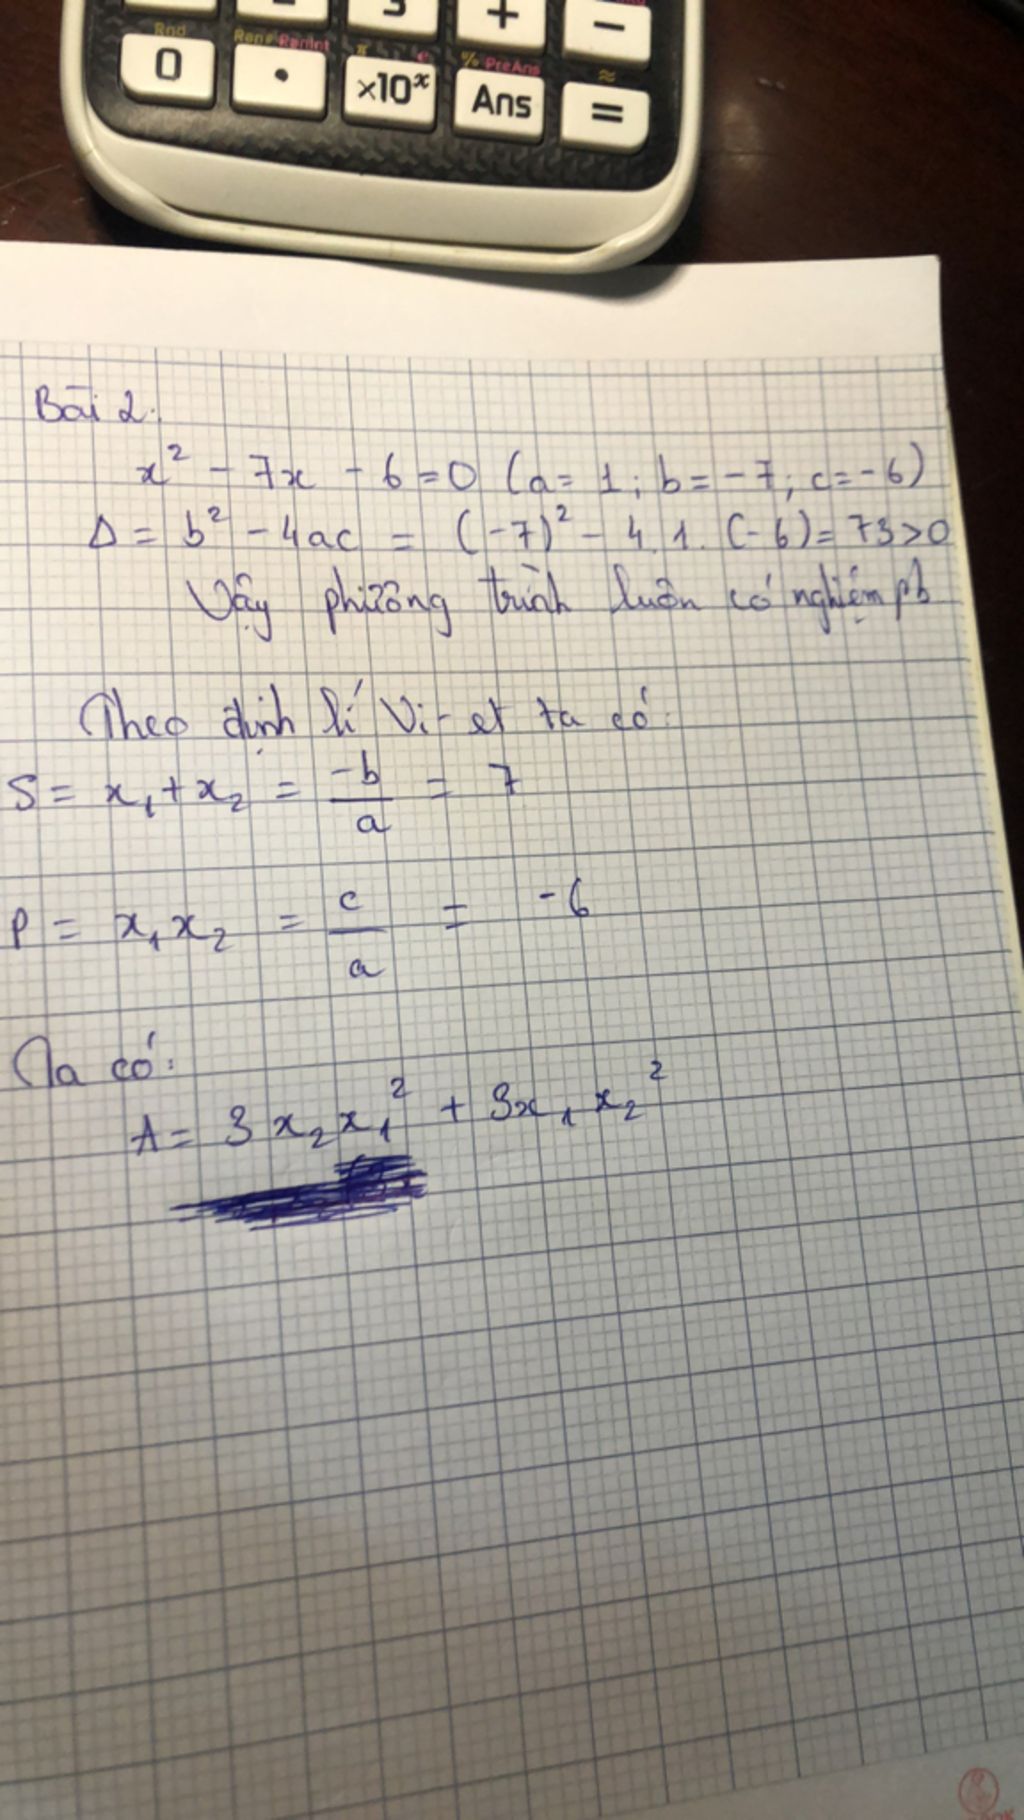 3 + −
Rnd Ran# RanInt π e % PreAns ≈
0 • ×10ˣ Ans =
Bài 2:
x² - 7x - 6 = 0 (a = 1; b = -7; c = -6)
Δ = b² - 4ac = (-7)² - 4.1.(-6) = 73 > 0
Vậy phương trình luôn có nghiệm pb
Theo định lí Vi-et ta có:
S = x₁ + x₂ = -b/a = 7
P = x₁x₂ = c/a = -6
Ta có:
A = 3x₂x₁² + 3x₁x₂²